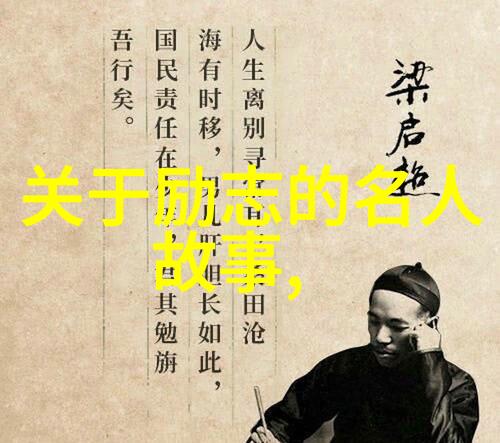 关于励志的名人
故事,
人生离别寻 田沧
海有时移，男儿肝胆长如此，
国民责任在 其勉旃
吾行矣。
梁启超